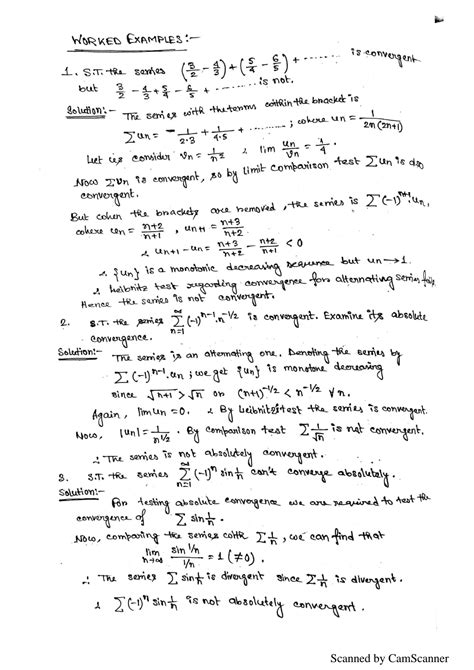 WORKED EXAMPLES:-
1. S.T. the series (3/2 - 4/3) + (5/4 - 6/5) + ........ is convergent
but 3/2 - 4/3 + 5/4 - 6/5 + ........ is not.
Solution:- The series with the terms within the bracket is
∑un = 1/2·3 + 1/4·5 + ..........; where un = 1/2n(2n+1)
Let us consider vn = 1/n² & lim un/vn = 1/4.
Now ∑vn is convergent, so by limit comparison test ∑un is also
convergent.
But when the brackets are removed, the series is ∑(-1)^(n+1) un,
where un = n+2/n+1, un+1 = n+3/n+2.
∴ un+1 - un = n+3/n+2 - n+2/n+1 < 0
∴ {un} is a monotonic decreasing sequence but un → 1.
∴ Leibnitz test regarding convergence for alternating series fails
Hence the series is not convergent.
2. S.T. the series ∞∑n=1 (-1)^(n-1) . n^(-1/2) is convergent. Examine its absolute
convergence.
Solution:- The series is an alternating one. Denoting the series by
∑(-1)^(n-1) . un; we get {un} is monotone decreasing
since √n+1 > √n or (n+1)^(-1/2) < n^(-1/2) ∀ n.
Again, lim un = 0. ∴ By Leibnitz test the series is convergent.
Now, |un| = 1/n^(1/2) . By comparison test ∑ 1/√n is not convergent.
∴ The series is not absolutely convergent.
3. S.T. the series ∞∑n=1 (-1)^n sin 1/n can't converge absolutely.
Solution:-
For testing absolute convergence we are required to test the
convergence of ∑ sin 1/n.
Now, comparing the series with ∑ 1/n, we can find that
lim n→∞ sin 1/n / 1/n = 1 (≠0).
∴ The series ∑ sin 1/n is divergent since ∑ 1/n is divergent.
∴ ∑(-1)^n sin 1/n is not absolutely convergent.
Scanned by CamScanner